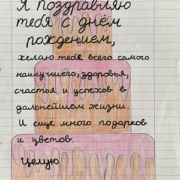 Я поздравляю
тебя с днём
рождением,
желаю тебя всего самого
наилучшего, здоровья,
счастья и успехов в
дальнейшем жизни.
И ещё много подарков
и цветов.
Целую